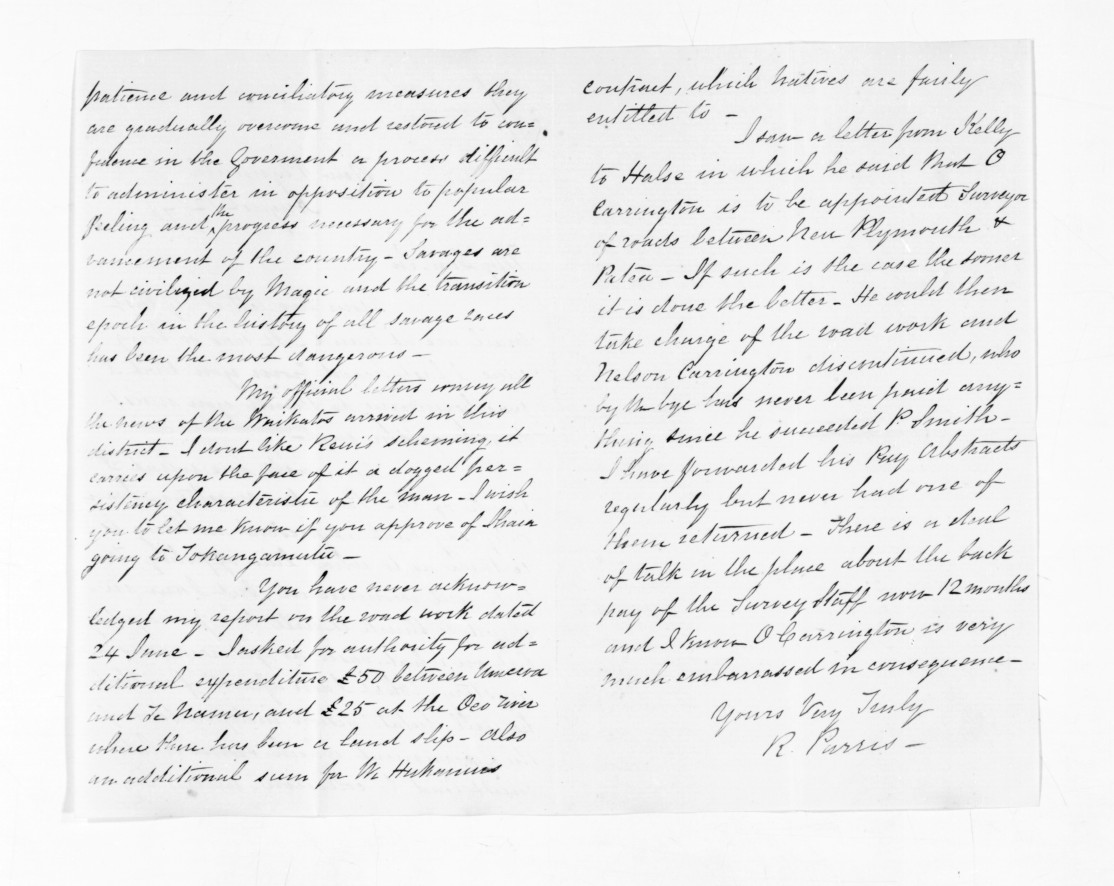 patience and conciliatory measures they
are gradually overcome and restored to con=
fidence in the Goverment a process difficult
to administer in opposition to popular
feeling and the progress necessary for the ad=
vancement of the country – Savages are
not civilized by Magic and the transition
epoch in the history of all savage races
has been the most dangerous –
My official letters convey all
the news of the Waikatos arrived in this
district – I dont like Rewi's scheming, it
carries upon the face of it a dogged per=
sistency characteristic of the man – I wish
you to let me know if you approve of Ihaia
going to Tokangamutu –
You have never acknow=
ledged my report on the road work dated
24 June – I asked for authority for ad=
ditional expenditure £50 between Umeroa
and Te Namu, and £25 at the Oeo river
where there has been a land slip – also
an additional sum for Wm Hukanuis
contract, which natives are fairly
entitled to –
I saw a letter from Kelly
to Halse in which he said that O
Carrington is to be appointed Surveyor
of roads between New Plymouth &
Patea – If such is the case the sooner
it is done the better – He could then
take charge of the road work and
Nelson Carrington discontinued, who
by the bye has never been paid any=
thing since he succeeded P. Smith –
I have forwarded his Pay Abstracts
regularly but never had one of
them returned – There is a deal
of talk in the place about the back
pay of the Survey Staff now 12 months
and I know O Carrington is very
much embarrassed in consequence –
Yours Very Truly
R. Parris –